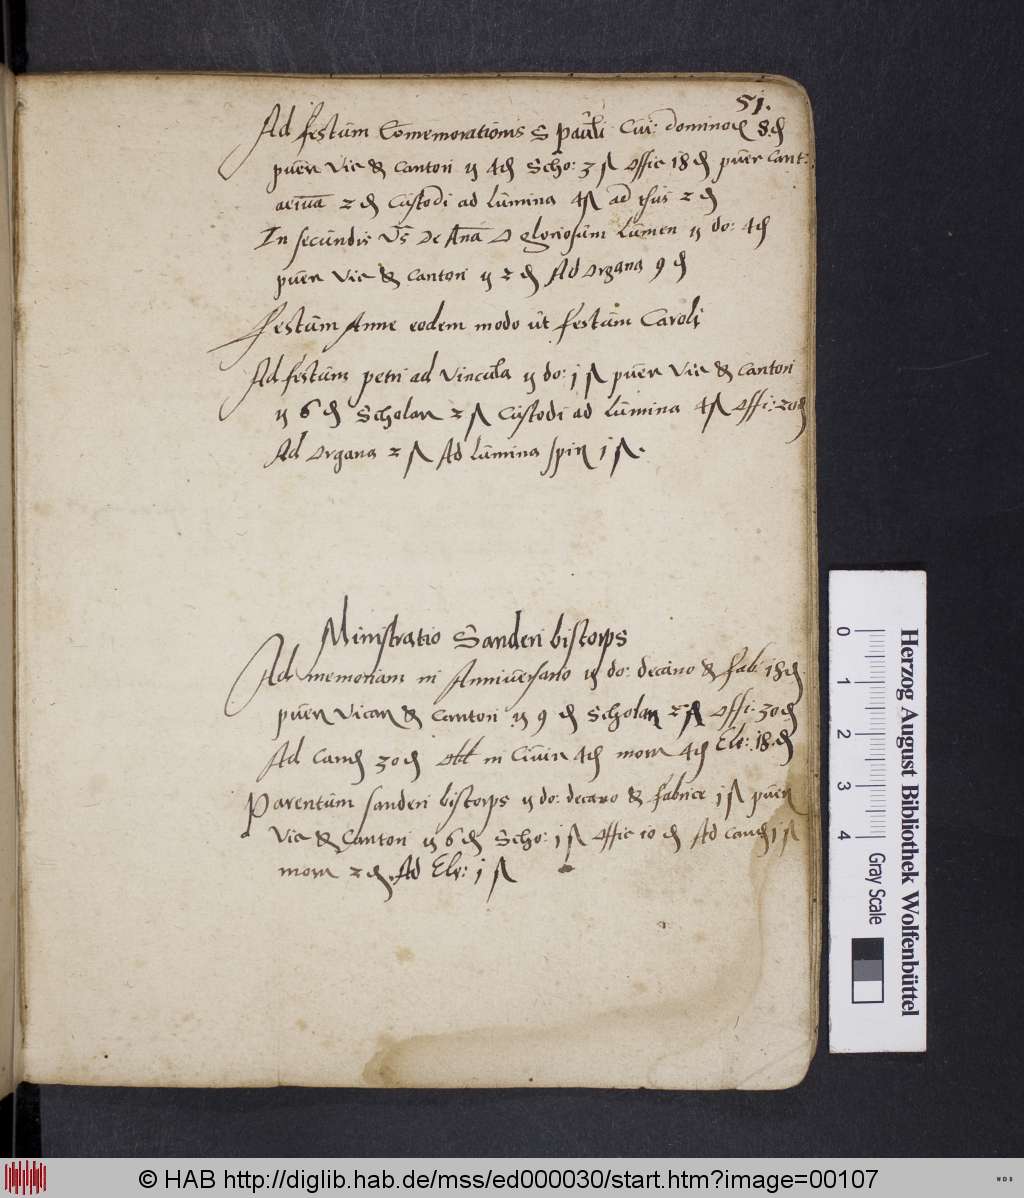 51.
Ad festum Comemorationis S pauli Cui: dominor 8 d
puer Vic & Cantori y 4 d Scho: 3 ß Offic 18 d puer Cant:
2 d Custodi ad lumina 4 ß ad thus 2 d
In secundis Vs De Ana O gloriosum lumen y do: 4 d
puer Vic & Cantori y 2 d Ad Organa 9 d
Festum Anne eodem modo ut festum Caroli
Ad festum petri ad Vincula y do: j ß puer Vic & Cantori
y 6 d Scholar 2 ß Custodi ad lumina 4 ß Offi: 20 d
Ad Organa 2 ß Ad lumina j ß.
Ministratio Sanderi bistorps
Ad memoriam in Anniversario y do: decano & fab: 18 d
puer Vicar & Cantori y 9 d Scholar 2 ß Offi: 30 d
Ad Cand 30 d Obl in Civir 4 d mora 4 d Ele: 18 d
Parentum sanderi bistorps y do: decano & fabrice j ß puer
Vic & Cantori y 6 d Scho: j ß Offic 10 d Ad Cand 1 ß
mora 2 d. Ad Ele: j ß
Herzog August Bibliothek Wolfenbüttel
0 1 2 3 4
Gray Scale
© HAB http://diglib.hab.de/mss/ed000030/start.htm?image=00107